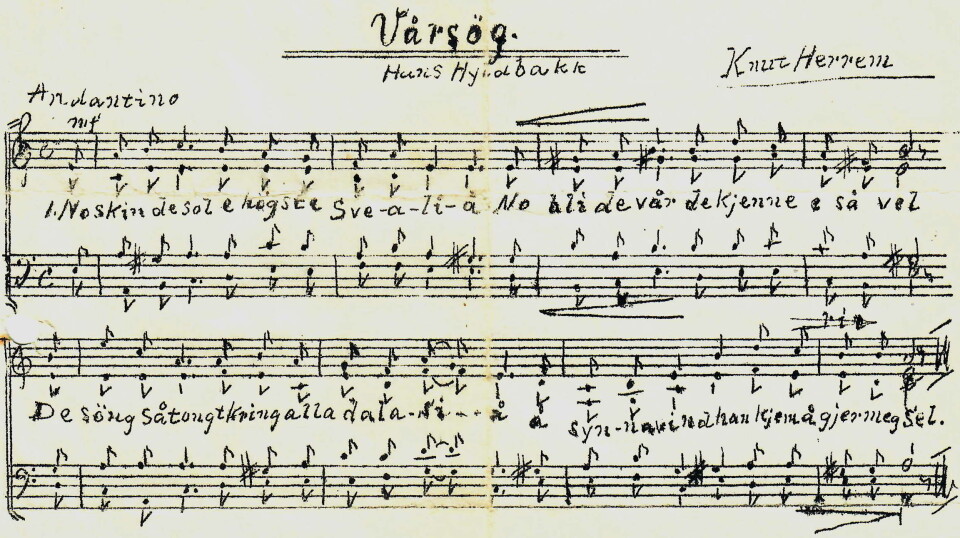 Vårsög.
Hans Hyldbakk
Knut Herrem
Andantino
mf
1. No skin de sol e högste Sve-a-li-a No bli de vår de kjenne e så vel
rit
De söng såtongt kring alla dala-li--å å syn-na vind han kjem å gjer meg sel.